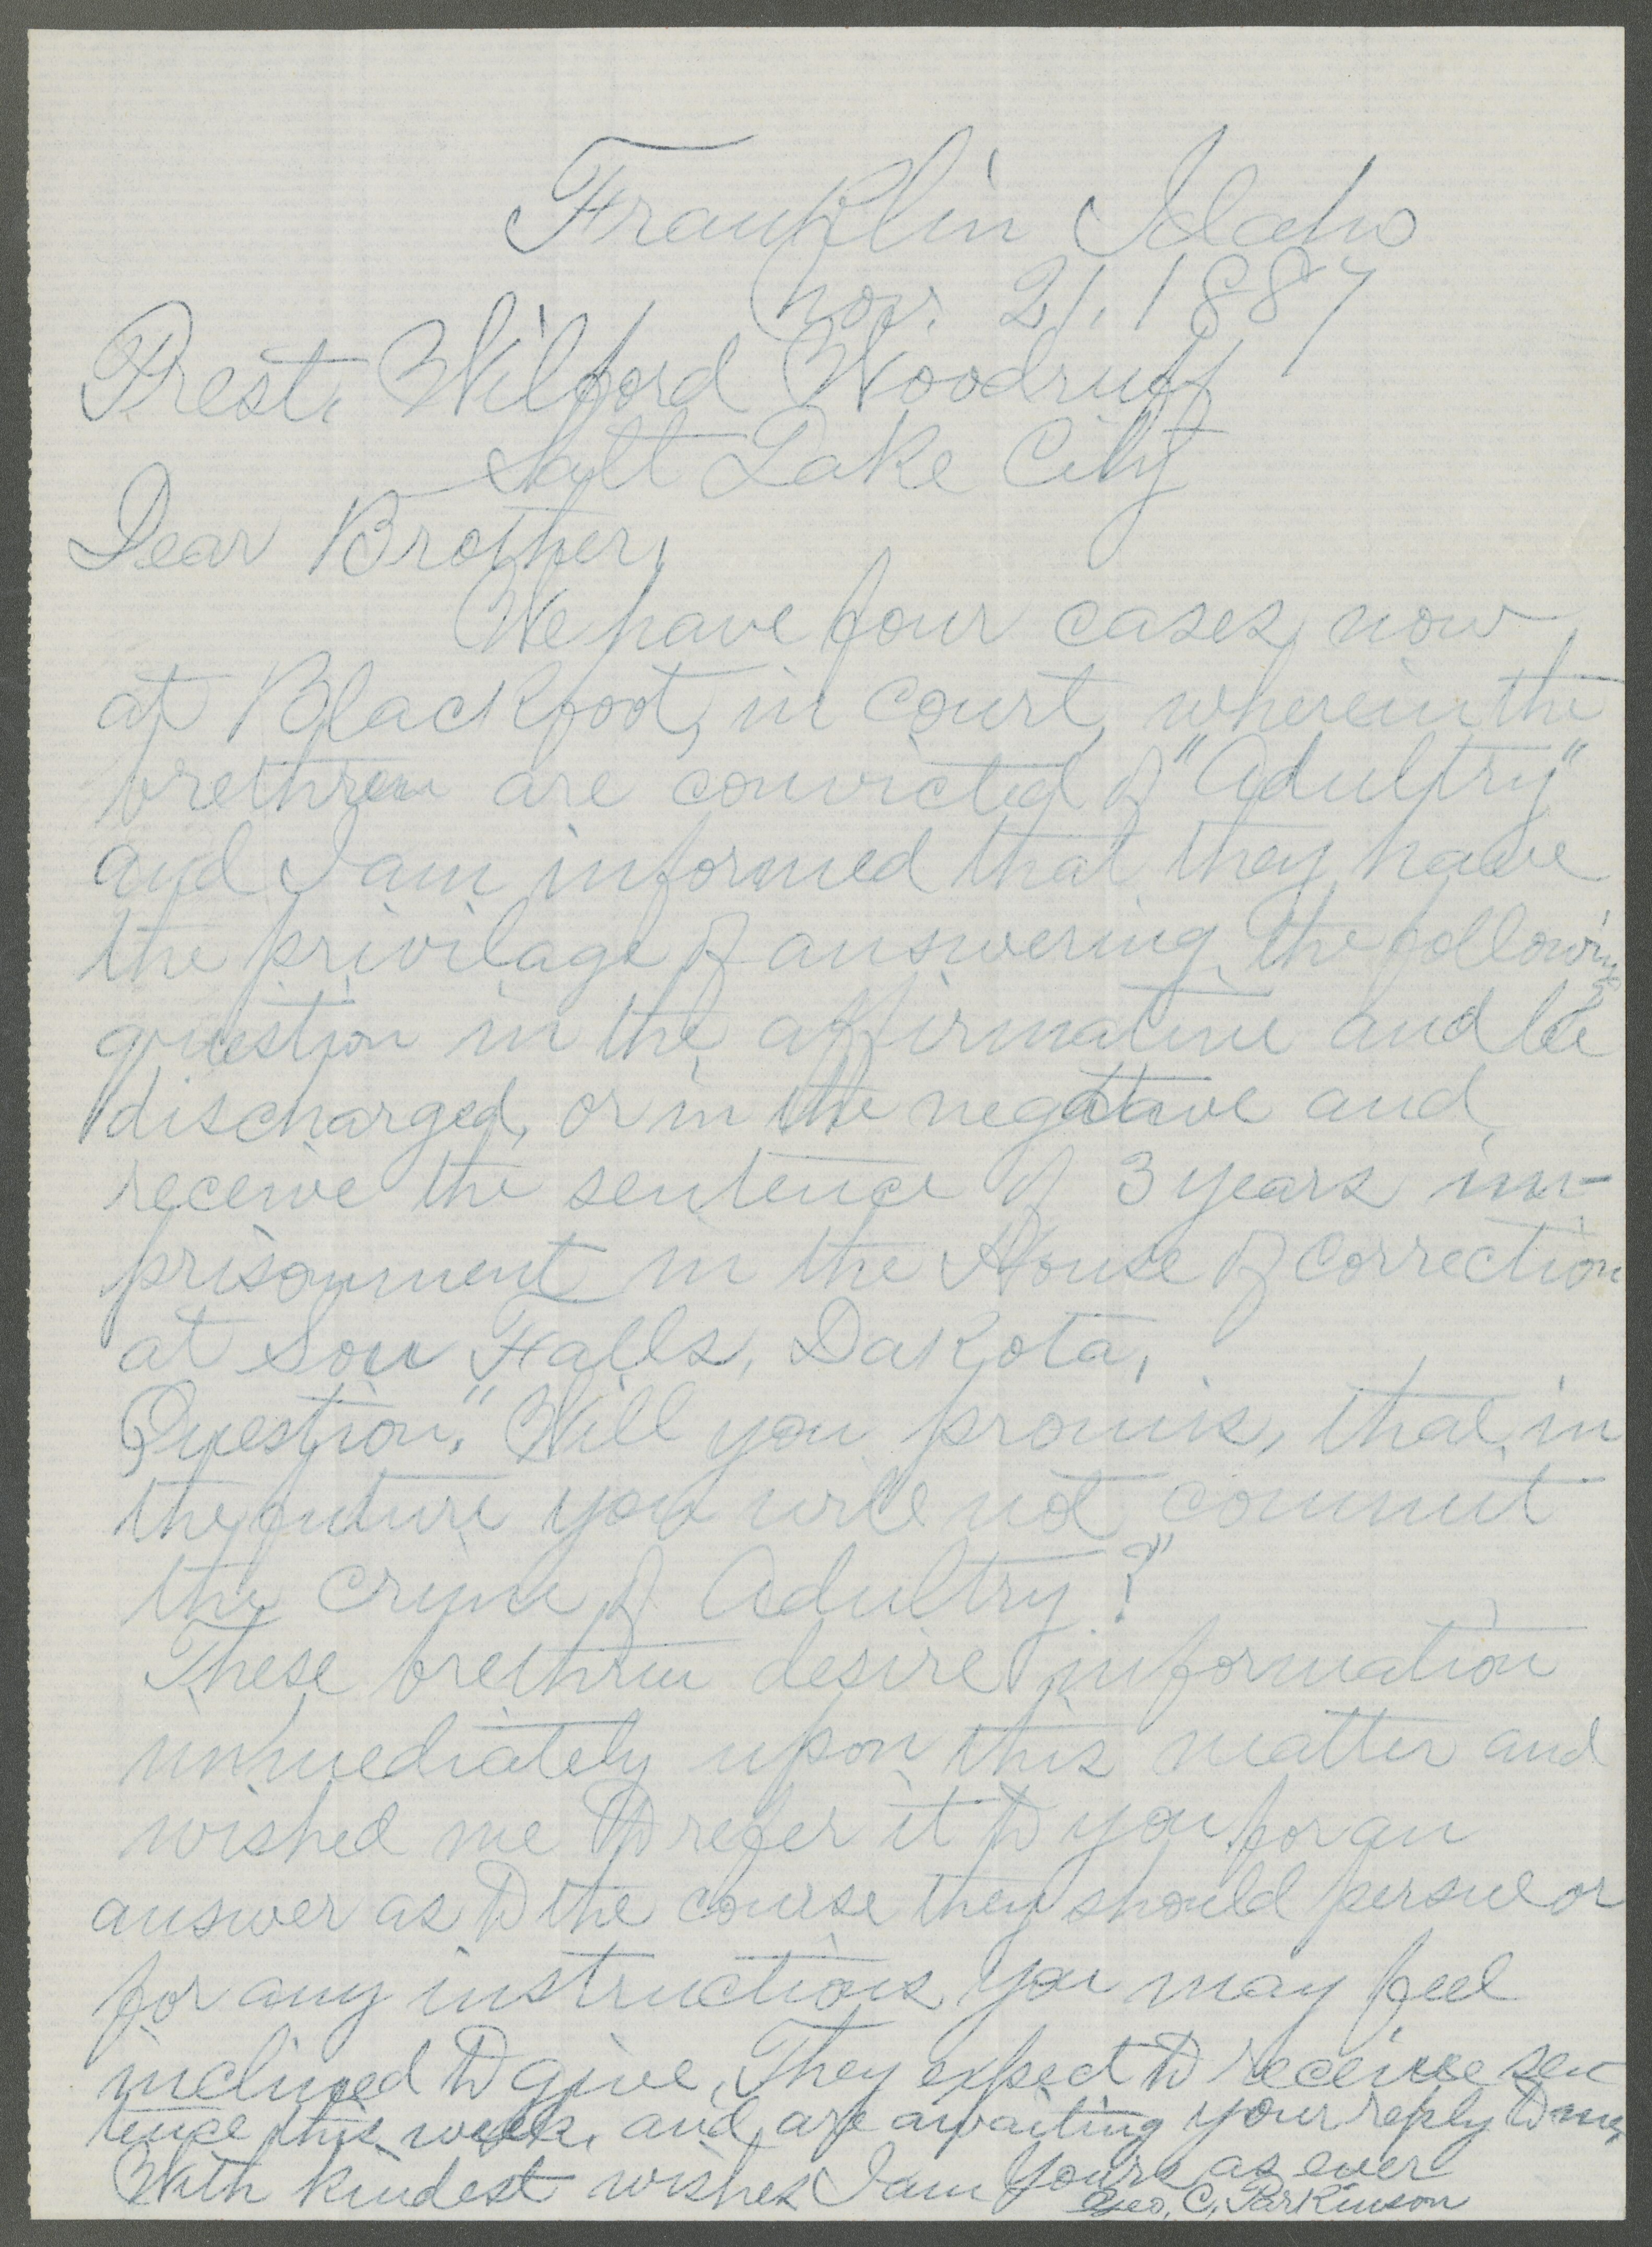 Franklin Idaho
Nov. 21, 1887
Prest. Wilford Woodruff
Salt Lake City
Dear Brother,
We have four cases now
at Blackfoot, in court, wherein the
brethren are convicted of "Adultry"
and I am informed that they have
the privilage of answering the following
question in the affirmative and be
discharged, or in the negative and
receive the sentence of 3 years im-
prisonment in the House of Correction
at Sou Falls, Dakota,
Question, "Will you promis, that, in
the future you will not commit
the crime of Adultry?"
These brethren desire information
immediately upon this matter and
wished me to refer it to you for an
answer as to the course they should persue or
for any instructions you may feel
inclined to give. They expect to receive sen
tence this week, and are awaiting your reply to me,
With kindest wishes I am Yours as ever
Geo. C. Parkinson